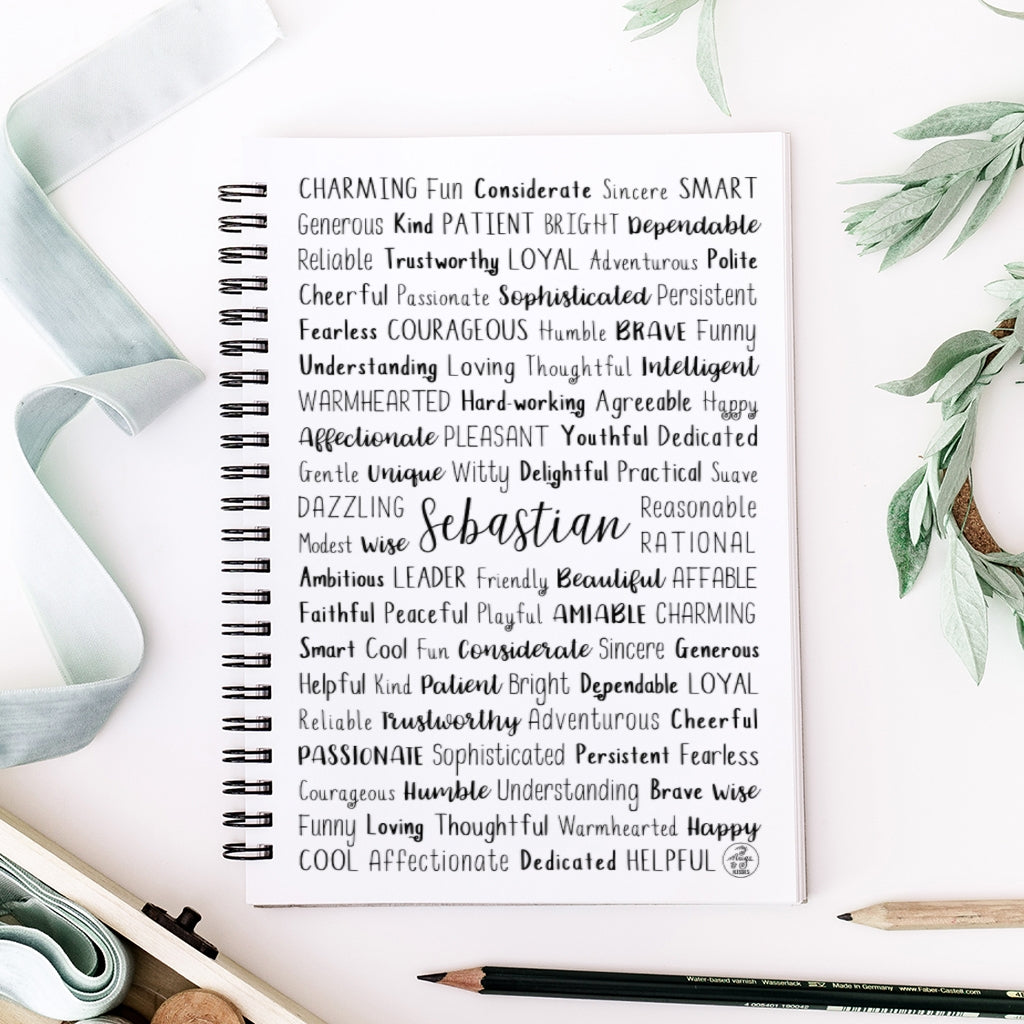 CHARMING Fun Considerate Sincere SMART
Generous Kind PATIENT BRIGHT Dependable
Reliable Trustworthy LOYAL Adventurous Polite
Cheerful Passionate Sophisticated Persistent
Fearless COURAGEOUS Humble BRAVE Funny
Understanding Loving Thoughtful Intelligent
WARMHEARTED Hard-working Agreeable Happy
Affectionate PLEASANT Youthful Dedicated
Gentle Unique Witty Delightful Practical Suave
DAZZLING
Modest Wise
Sebastian
Reasonable
RATIONAL
Ambitious LEADER Friendly Beautiful AFFABLE
Faithful Peaceful Playful AMIABLE CHARMING
Smart Cool Fun Considerate Sincere Generous
Helpful Kind Patient Bright Dependable LOYAL
Reliable Trustworthy Adventurous Cheerful
PASSIONATE Sophisticated Persistent Fearless
Courageous Humble Understanding Brave Wise
Funny Loving Thoughtful Warmhearted Happy
COOL Affectionate Dedicated HELPFUL
Water-based varnish Wasserlack Made in Germany www.Faber-Castell.com